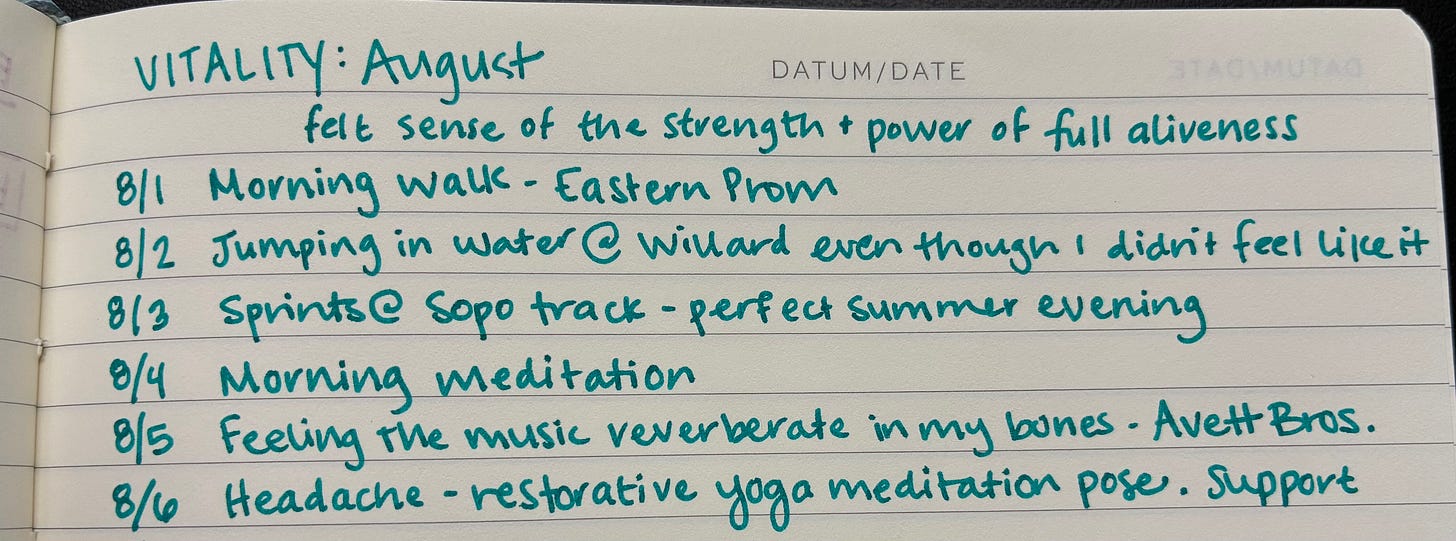 VITALITY: August DATUM/DATE
felt sense of the strength + power of full aliveness
8/1 Morning walk - Eastern Prom
8/2 Jumping in water @ Willard even though I didn't feel like it
8/3 Sprints @ Sopo track - perfect summer evening
8/4 Morning meditation
8/5 Feeling the music reverberate in my bones - Avett Bros.
8/6 Headache - restorative yoga meditation pose. Support